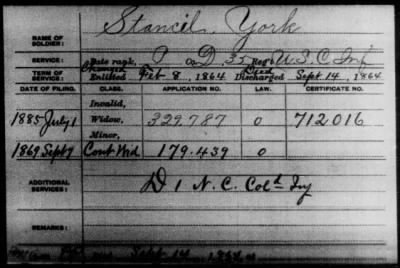 NAME OF SOLDIER: Stancil, York
SERVICE: Late rank, P Co. D, 35 Reg't U.S.C. Inf
TERM OF SERVICE: Enlisted Feb 8, 1864 Discharged Died Sept 14, 1864
DATE OF FILING. CLASS. APPLICATION NO. LAW. CERTIFICATE NO.
Invalid,
1885 July 1 Widow, 329.787 0 712016
Minor,
1869 Sept 7 Cont Wid 179.439 0
ADDITIONAL SERVICES: D 1 N.C. Cold Inf
REMARKS:
Sept 14